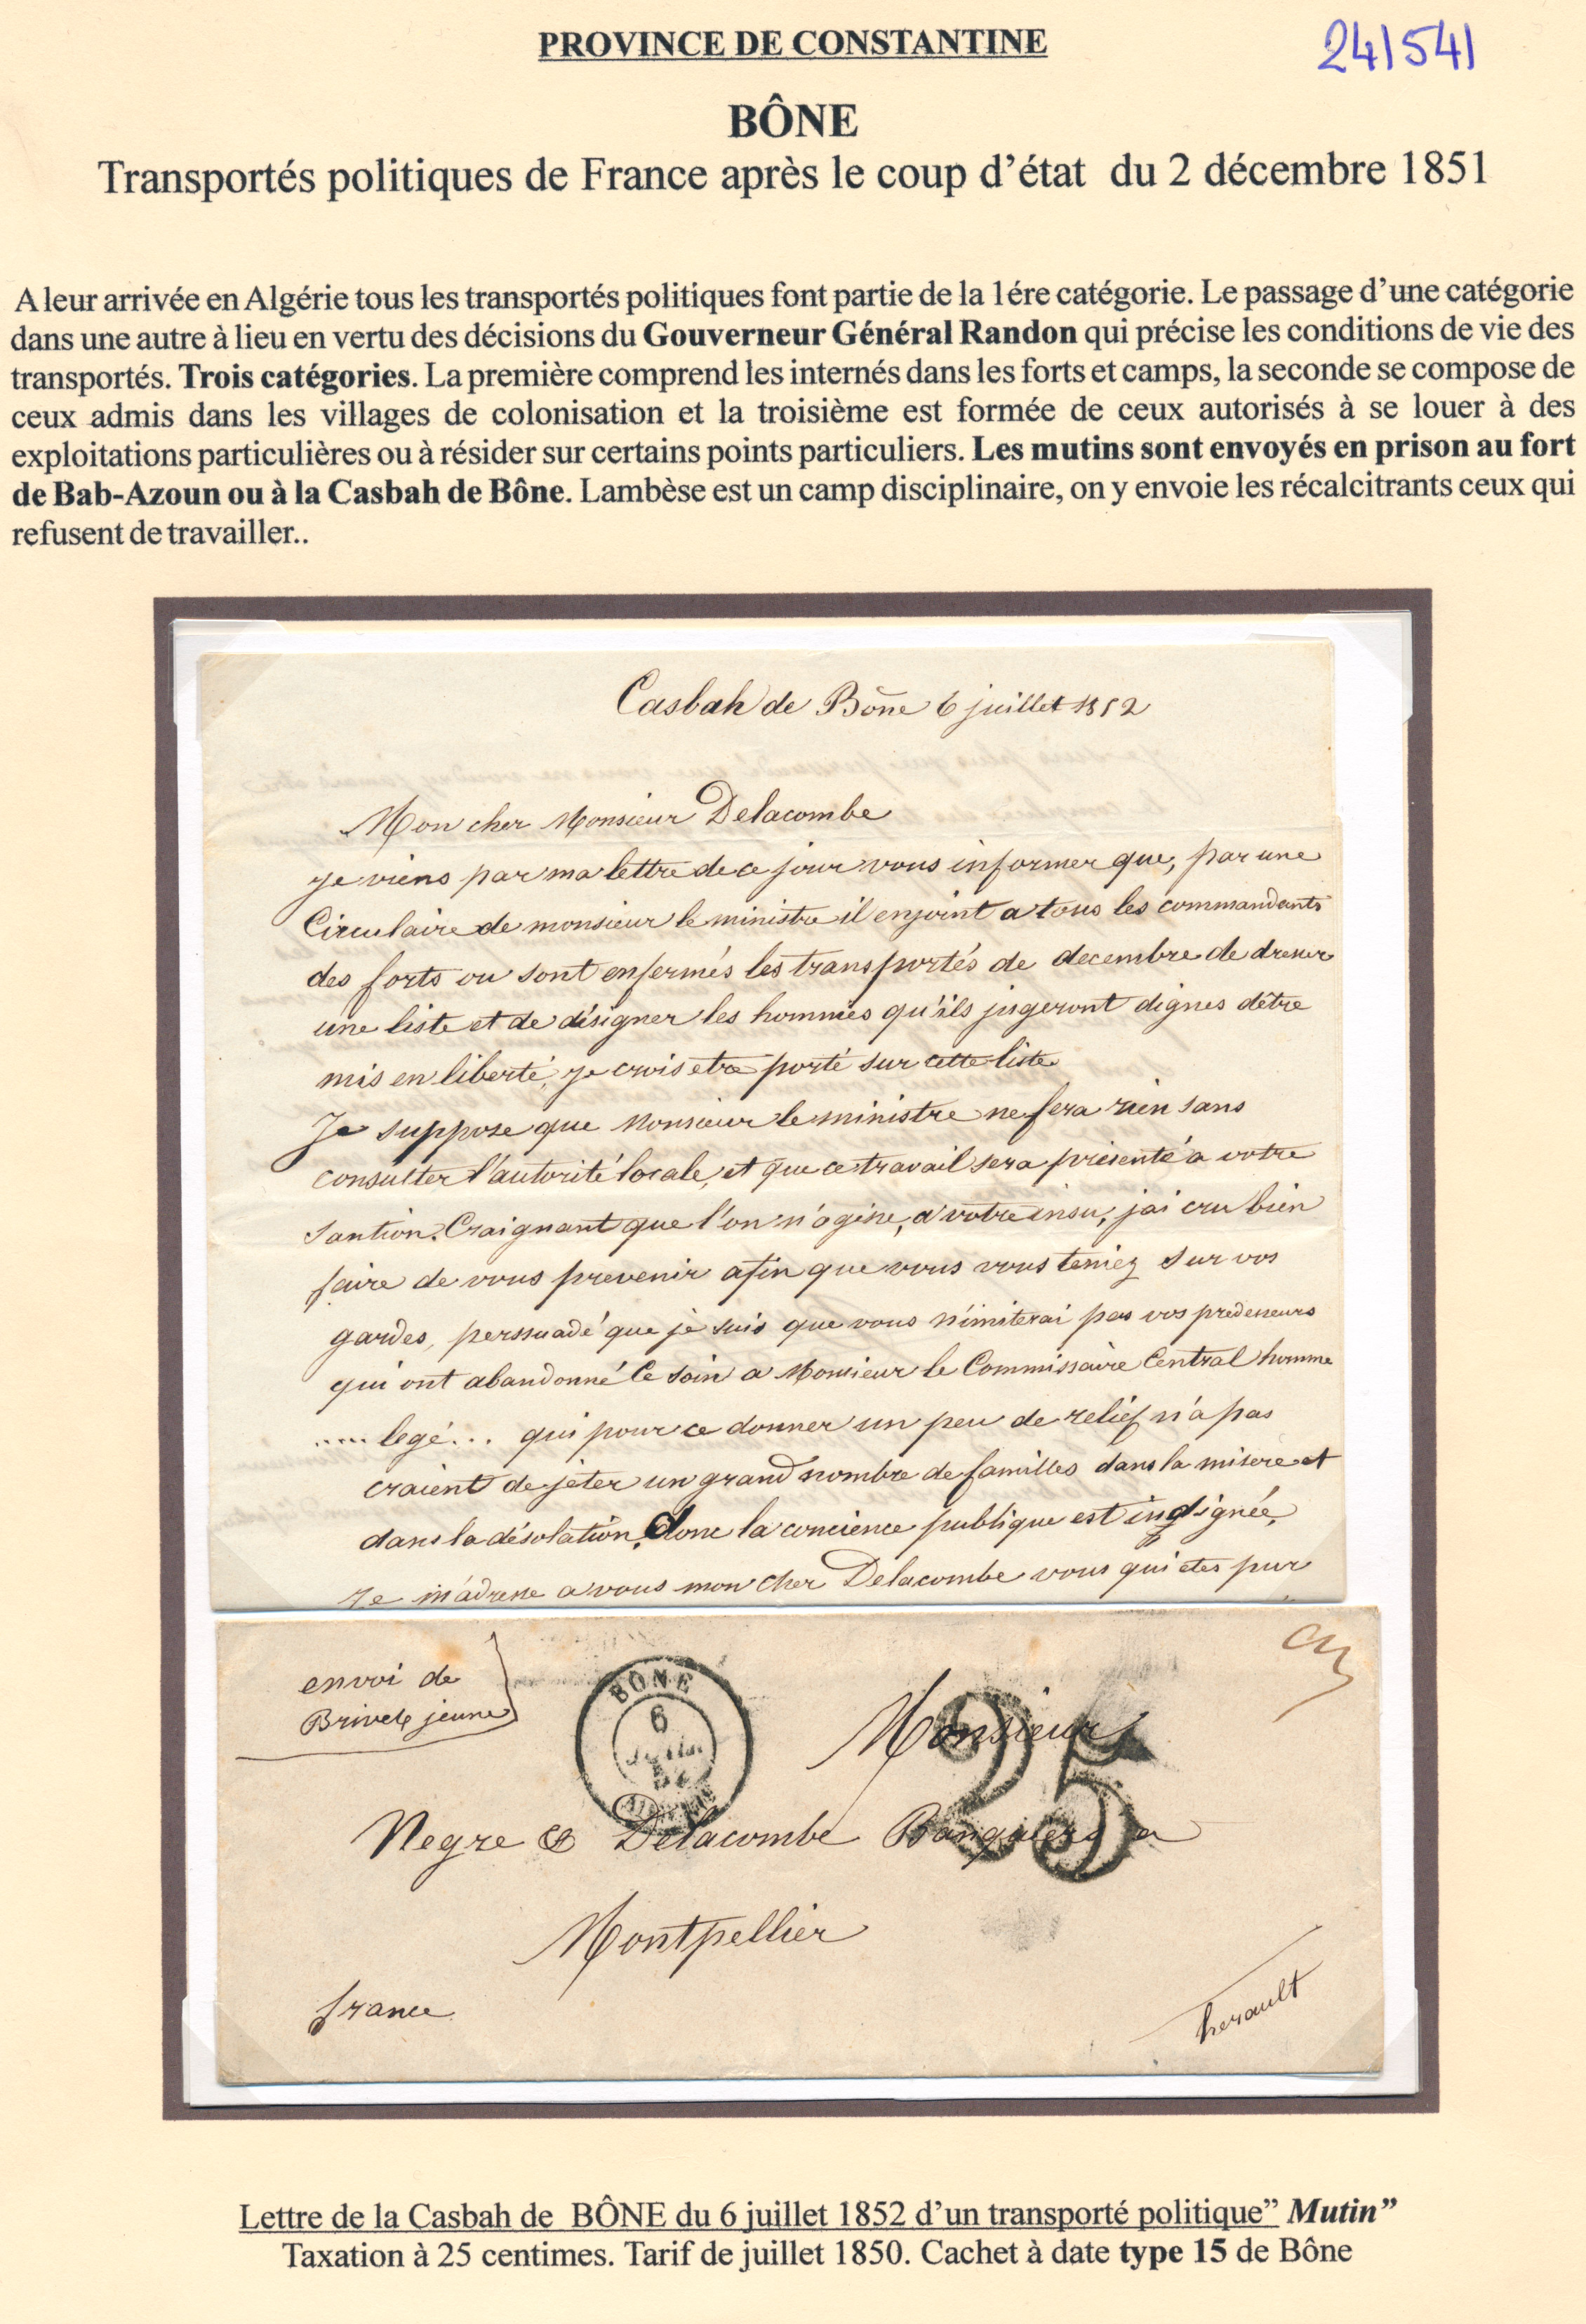 PROVINCE DE CONSTANTINE
241541
BÔNE
Transportés politiques de France après le coup d'état du 2 décembre 1851
A leur arrivée en Algérie tous les transportés politiques font partie de la 1ére catégorie. Le passage d'une catégorie
dans une autre à lieu en vertu des décisions du Gouverneur Général Randon qui précise les conditions de vie des
transportés. Trois catégories. La première comprend les internés dans les forts et camps, la seconde se compose de
ceux admis dans les villages de colonisation et la troisième est formée de ceux autorisés à se louer à des
exploitations particulières ou à résider sur certains points particuliers. Les mutins sont envoyés en prison au fort
de Bab-Azoun ou à la Casbah de Bône. Lambèse est un camp disciplinaire, on y envoie les récalcitrants ceux qui
refusent de travailler..
Casbah de Bône 6 juillet 1852
Mon cher Monsieur Delacombe
je viens par ma lettre de ce jour vous informer que, par une
Circulaire de monsieur le ministre il enjoint a tous les commandants
des forts ou sont enfermés les transportés de decembre de dresser
une liste et de désigner les hommes qu'ils jugeront dignes dêtre
mis en liberté, je crois etre porté sur cette liste
Je suppose que Monsieur le ministre ne fera rien sans
consulter l'autorité locale, et que ce travail sera présenté a votre
santion. Craignant que l'on n'agisse, a votre insu, jai cru bien
faire de vous prevenir afin que vous vous teniez sur vos
gardes, perssuadé que je suis que vous n'imiterai pas vos predesseurs
qui ont abandonné ce soin a Monsieur le Commissaire Central homme
.... legé... qui pour ce donner un peu de relief n'a pas
craient de jeter un grand nombre de familles dans la misere et
dans la désolation, donc la concience publique est indignée,
Je m'adresse a vous mon cher Delacombe vous qui etes pur
envoi de
jeune
BÔNE
6
JUIL.
52
ALGÉRIE
25
Monsieur
Negre & Delacombe Banquiers a
Montpellier
france
herault
Lettre de la Casbah de BÔNE du 6 juillet 1852 d'un transporté politique" Mutin"
Taxation à 25 centimes. Tarif de juillet 1850. Cachet à date type 15 de Bône